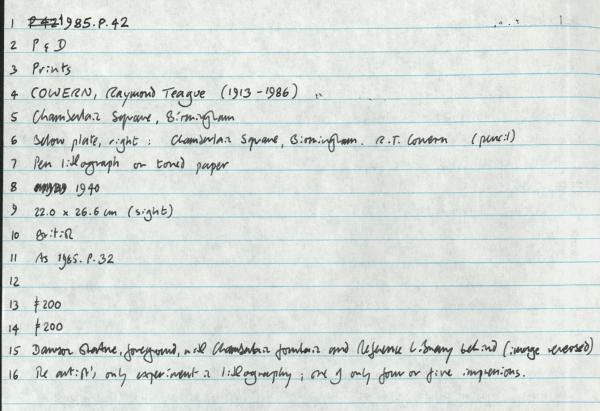 1 P.42 1985.P.42
2 P & D
3 Prints
4 COWERN, Raymond Teague (1913-1986)
5 Chamberlain Square, Birmingham
6 Below plate, right: Chamberlain Square, Birmingham. R.T. Cowern (pencil)
7 Pen lithograph on toned paper
8 1940
9 22.0 x 26.6 cm (sight)
10 British
11 As 1985.P.32
12
13 £200
14 £200
15 Dawson Statue, foreground, with Chamberlain fountain and Reference Library behind (image reversed)
16 The artist's only experiment in lithography; one of only four or five impressions.